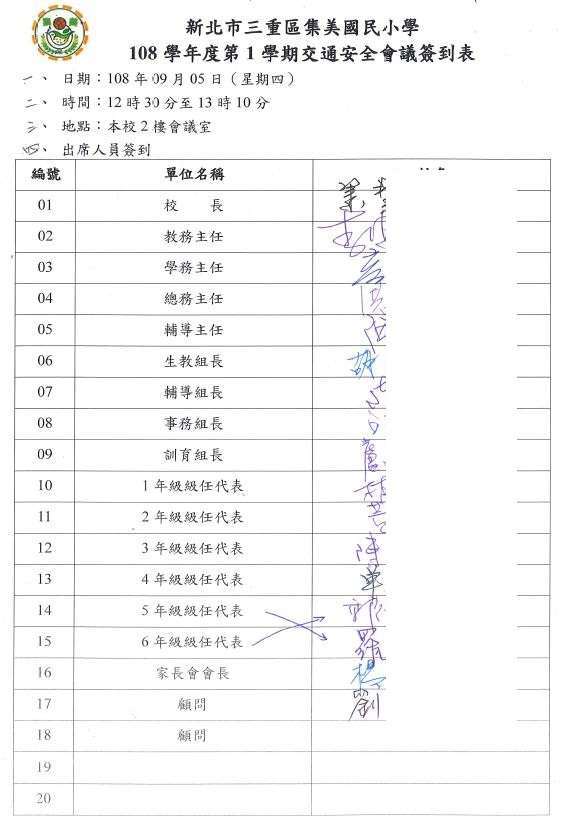 新北市三重區集美國民小學
108 學年度第 1 學期交通安全會議簽到表
一、 日期：108 年 09 月 05 日（星期四）
二、 時間：12 時 30 分至 13 時 10 分
三、 地點：本校 2 樓會議室
四、 出席人員簽到
編號 單位名稱
01 校 長
02 教務主任 李
03 學務主任
04 總務主任 洪
05 輔導主任
06 生教組長 胡
07 輔導組長
08 事務組長
09 訓育組長
10 1 年級級任代表
11 2 年級級任代表
12 3 年級級任代表 陳
13 4 年級級任代表 單
14 5 年級級任代表 郭
15 6 年級級任代表 羅
16 家長會會長 楊
17 顧問 劉
18 顧問
19
20